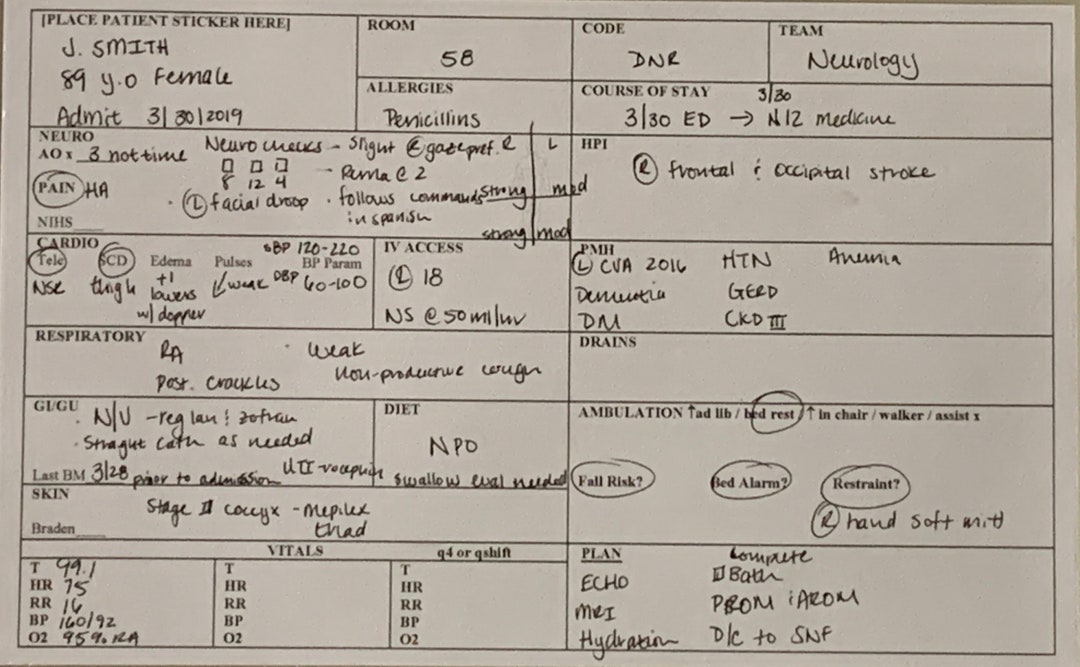 [PLACE PATIENT STICKER HERE]
J. SMITH
89 y.o Female
Admit 3/30/2019
ROOM
58
CODE
DNR
TEAM
Neurology
ALLERGIES
Penicillins
COURSE OF STAY 3/30
3/30 ED → N12 medicine
NEURO
AO x 3 not time
PAIN HA
NIHS
Neuro checks - Slight R gaze pref.
8 12 4
- Perrla @ 2
· L facial droop · follows commands
in spanish
R L
strong mod
strong mod
HPI
R frontal & occipital stroke
CARDIO
Tele SCD Edema Pulses BP Param
NSR thigh +1 lowers ↓weak
w/ doppler
SBP 120-220
DBP 60-100
IV ACCESS
L 18
NS @ 50 ml/hr
PMH
L CVA 2016 HTN Anemia
Dementia GERD
DM CKD III
RESPIRATORY
RA · Weak
Post. crackles non-productive cough
DRAINS
GI/GU
· N/V - reglan & zofran
· Straight cath as needed
Last BM 3/28 prior to admission UTI-rocephin
DIET
NPO
swallow eval needed
AMBULATION ↑ad lib / bed rest / ↑ in chair / walker / assist x
Fall Risk? Bed Alarm? Restraint?
R hand soft mitt
SKIN
Stage II coccyx - Mepilex
triad
Braden
VITALS q4 or qshift
T 99.1 T T
HR 75 HR HR
RR 16 RR RR
BP 160/92 BP BP
O2 95% RA O2 O2
PLAN
ECHO
MRI
Hydration
complete
Bath
PROM & AROM
D/c to SNF